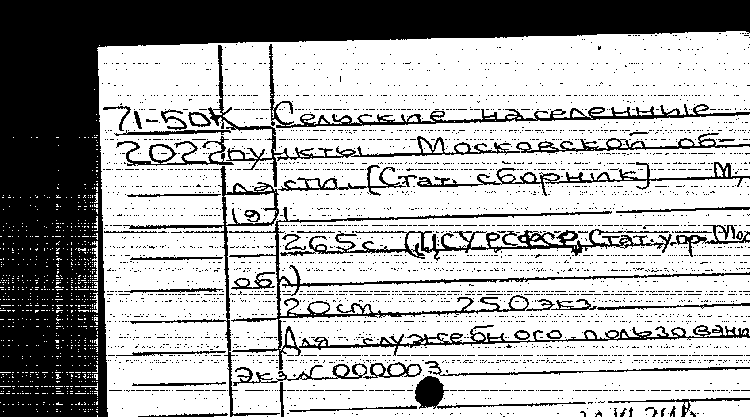 71-50К Сельские населенные
2022 пункты Московской об-
ласти. [Стат. сборник] М.,
1971.
265с. (ЦСУ РСФСР, Стат. упр. Мос
обл)
20см. 250экз.
Для служебного пользовани
Экз. № 000003